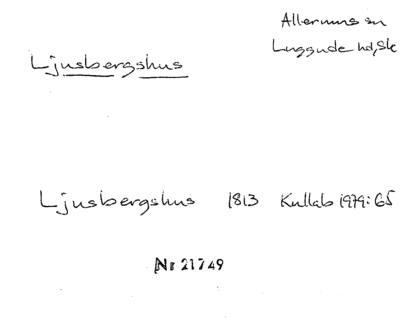 Allerums sn
Luggude hd, Sk
Ljusbergshus
Ljusbergshus 1813 Kullab 1979:65
Nr 21749